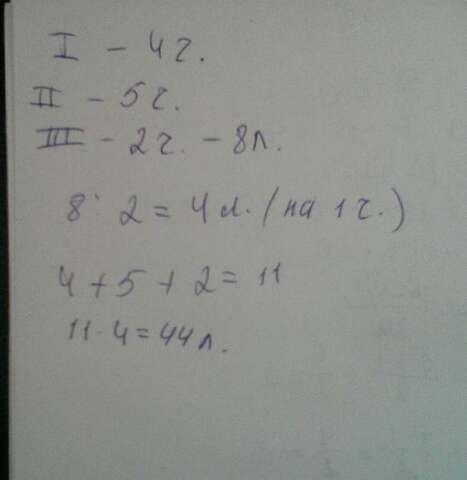 I - 4ч.
II - 5ч.
III - 2ч. - 8л.
8 : 2 = 4л. (на 1ч.)
4 + 5 + 2 = 11
11 · 4 = 44л.